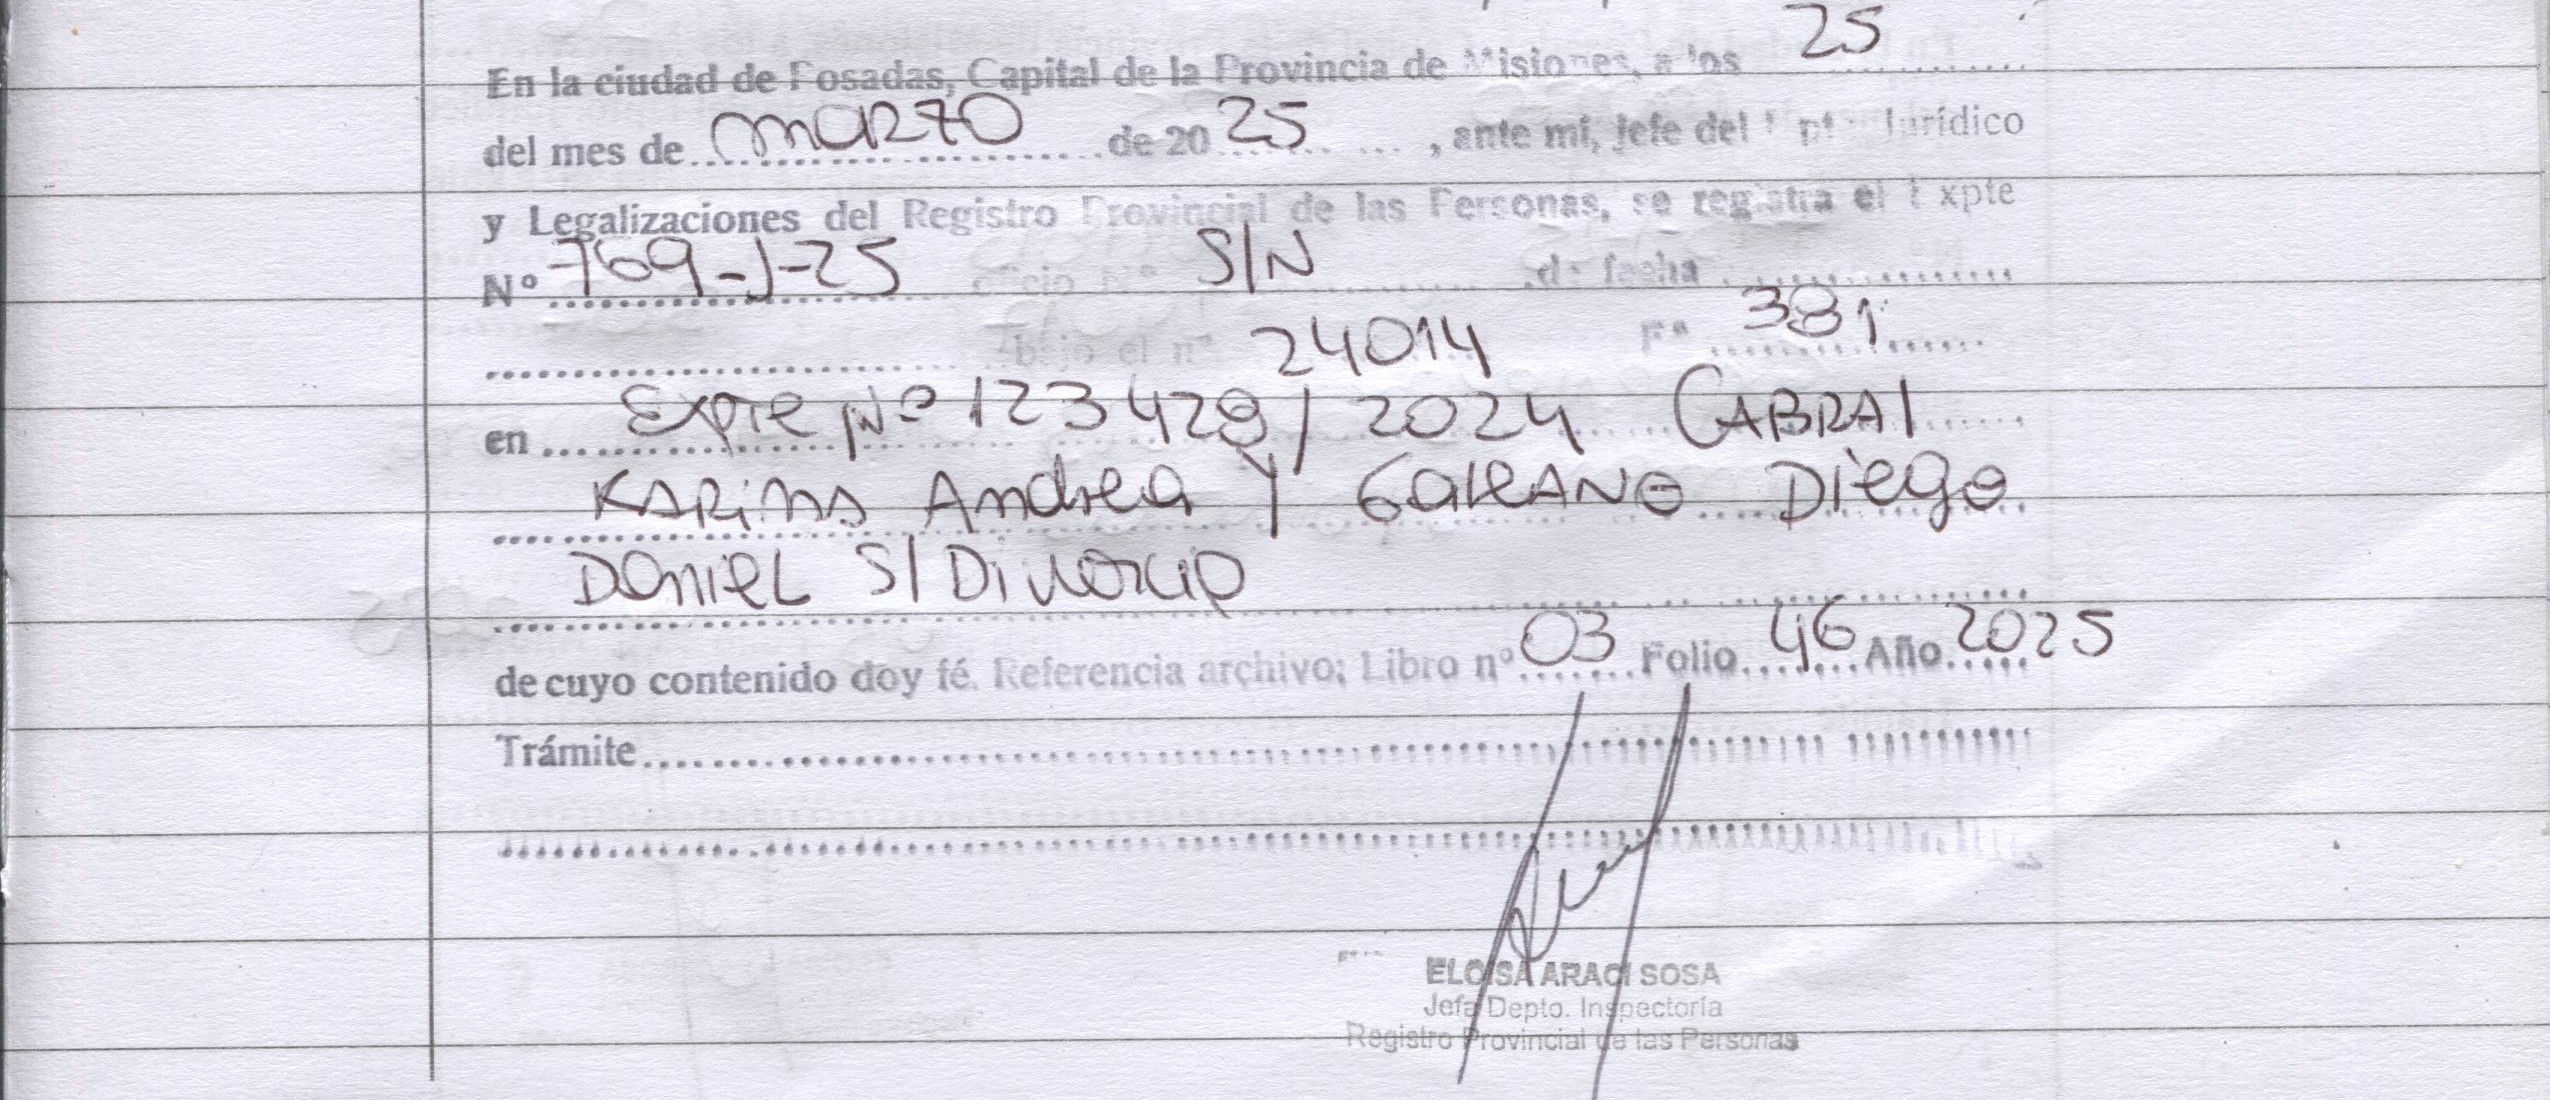 En la ciudad de Posadas, Capital de la Provincia de Misiones, a los 25
del mes de marzo de 2025, ante mí, Jefe del Dpto Jurídico
y Legalizaciones del Registro Provincial de las Personas, se registra el Expte
Nº 769-J-25 oficio Nº S/N de fecha
bajo el nº 24014 Fº 381
en Expte Nº 123429/2024 CABRAl
KARiNA Andrea y GaleANO Diego
DaniEL S/ Divorcio
de cuyo contenido doy fé. Referencia archivo; Libro nº 03 Folio 46 Año 2025
Trámite
ELOISA ARACI SOSA
Jefa Depto. Inspectoría
Registro Provincial de las Personas